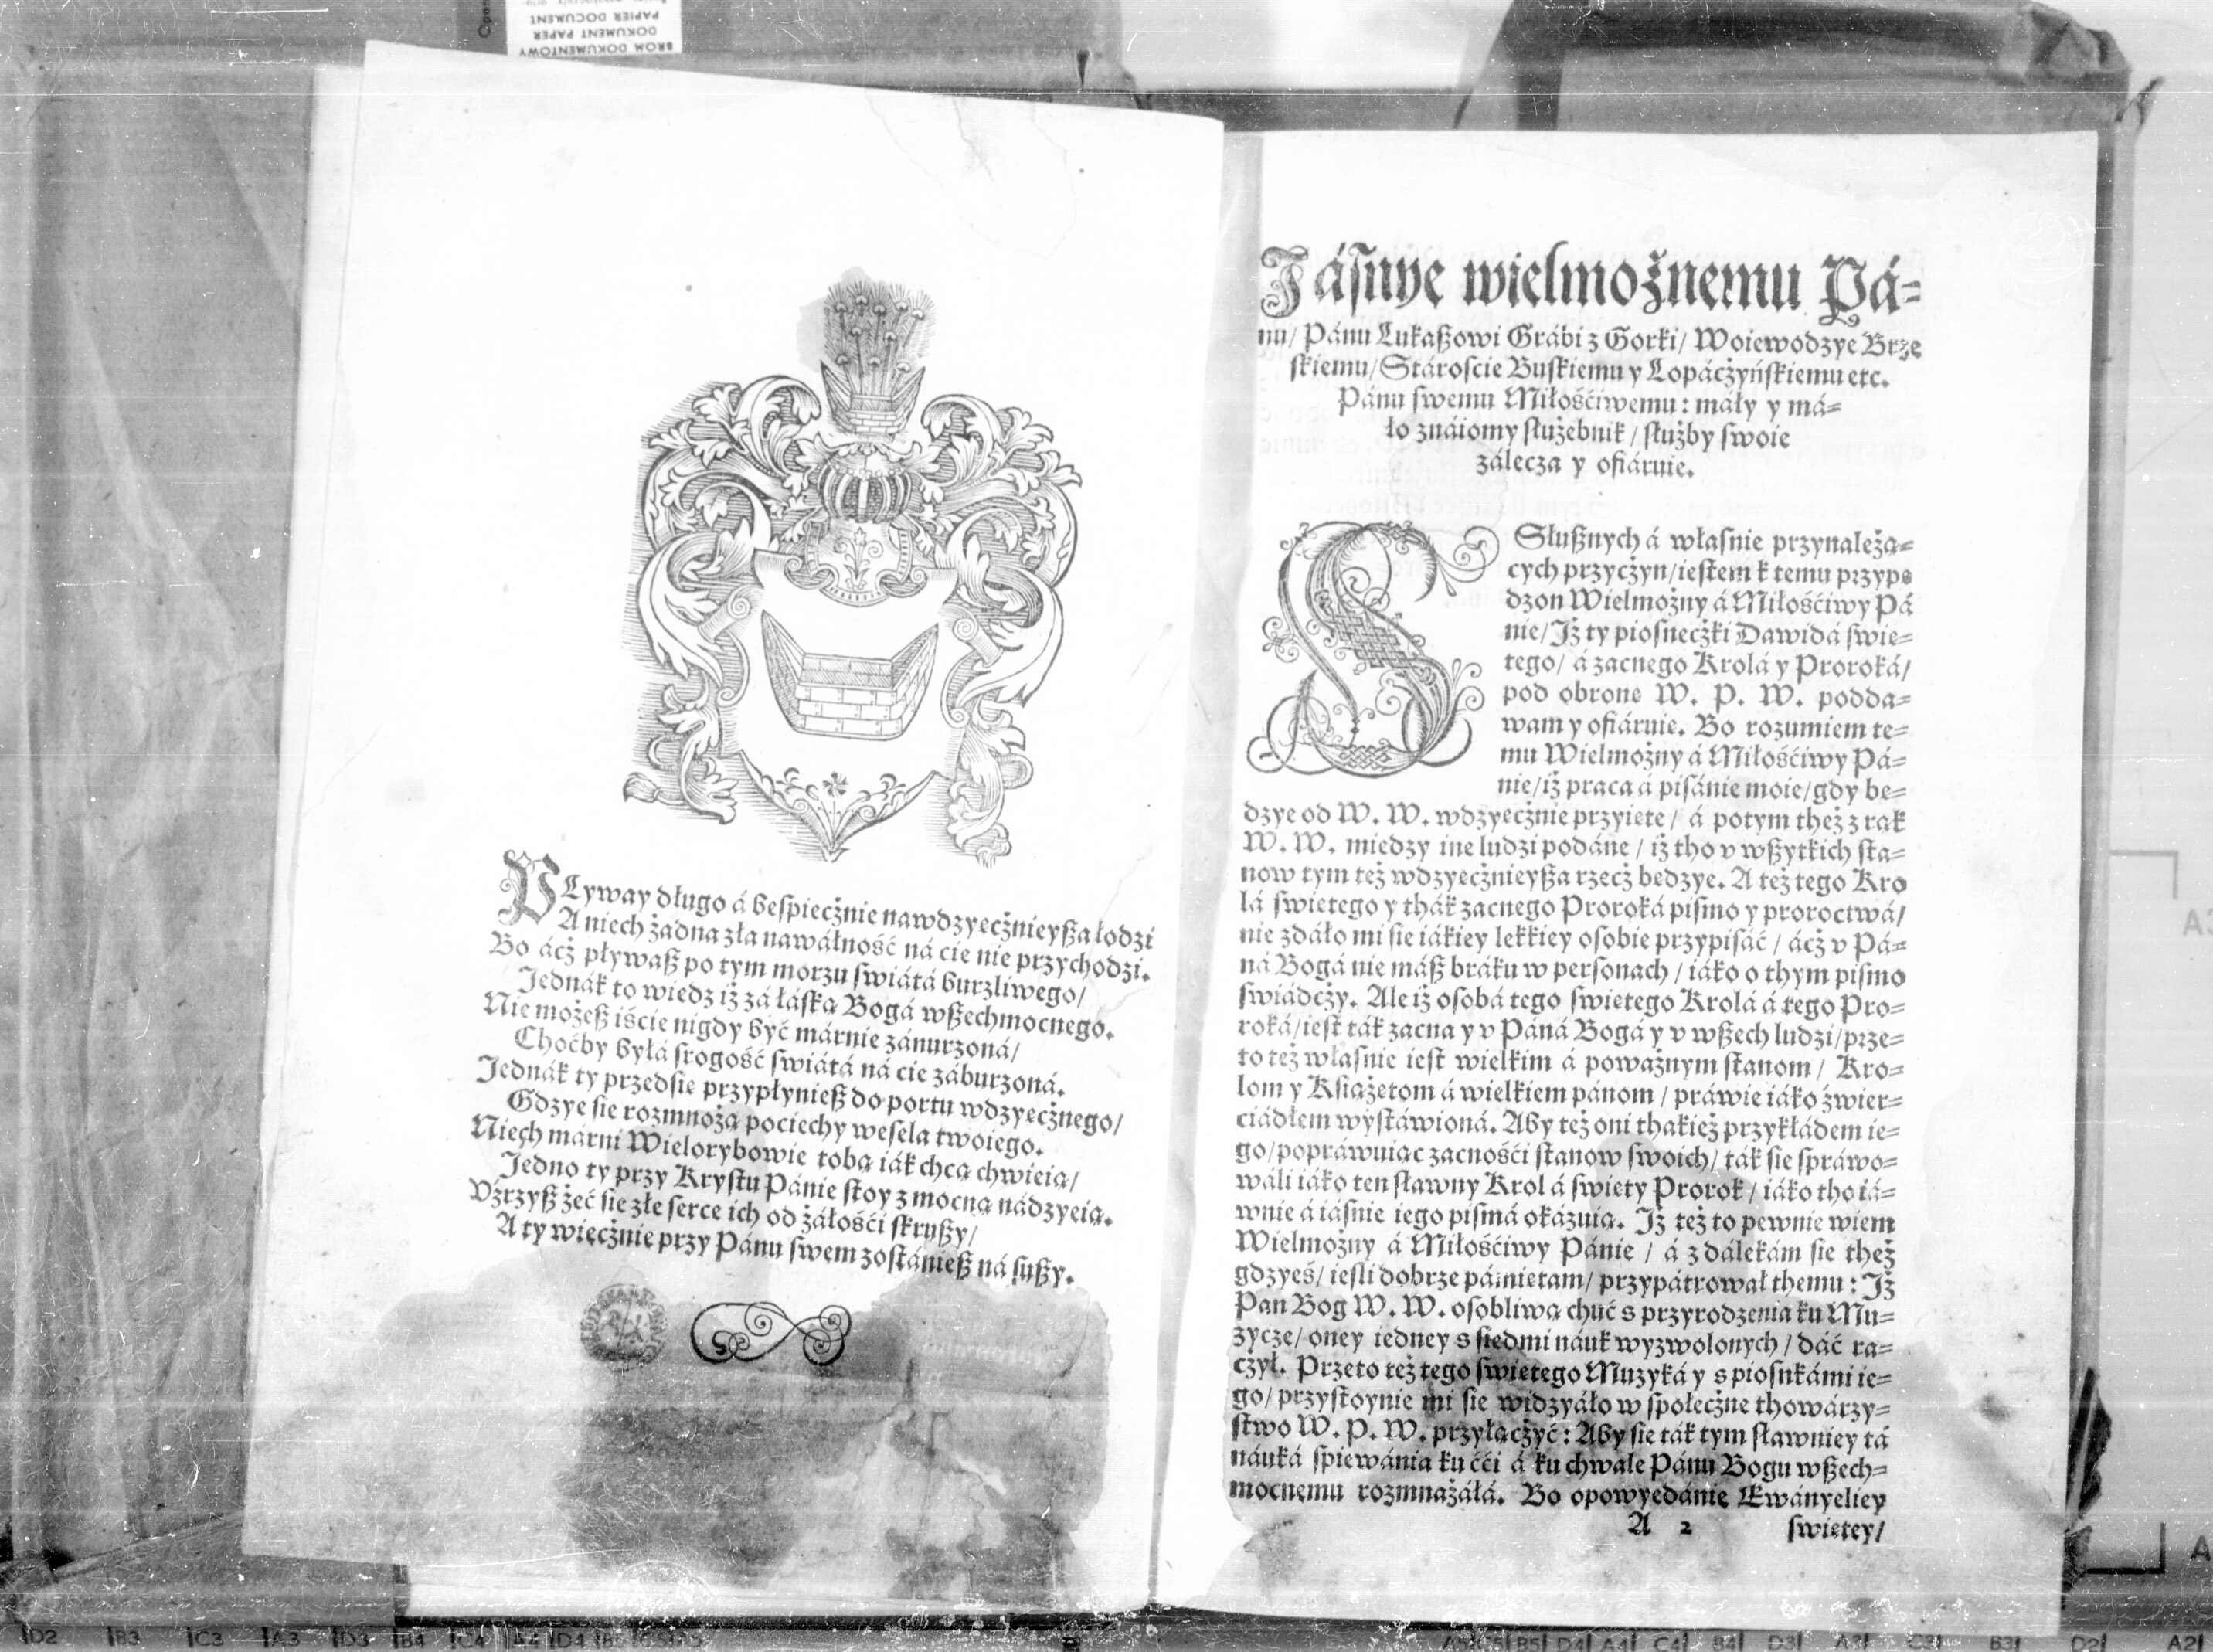 PLyway długo á bespiecżnie nawdzyecżnieyßa łodzi
A niech żadna zła nawáłność ná cie nie przychodzi.
Bo ácż pływaß po tym morzu swiátá burzliwego/
Jednák to wiedz iż zá łáską Bogá wßechmocnego.
Nie możeß iście nigdy być márnie zánurzoná/
Choćby byłá srogość swiátá ná cie záburzoná.
Jednák ty przedsie przypłynieß do portu wdzyecżnego/
Gdzye sie rozmnożą pociechy wesela twoiego.
Niech márni Wielorybowie tobą iák chcą chwieią/
Jedno ty przy Krystu Pánie stoy z mocną nádzyeią.
Vźrzyß żeć sie złe serce ich od żáłości skrußy/
A ty wiecżnie przy Pánu swem zostánieß ná sußy.
Jásnye wielmożnemu Pá=
nu/ Pánu Lukaßowi Grábi z Gorki/ Woiewodzye Brze
skiemu/ Stároscie Buskiemu y Lopácżyńskiemu etc.
Pánu swemu Miłościwemu: máły y má=
ło znáiomy służebnik/ służby swoie
zálecza y ofiáruie.
SSłußnych á własnie przynależą=
cych przycżyn/ iestem k temu przypo
dzon Wielmożny á Miłościwy Pá
nie/ Jż ty piosnecżki Dawidá swie=
tego/ á zacnego Krolá y Proroká/
pod obrone W. P. W. podda=
wam y ofiáruie. Bo rozumiem te=
mu Wielmożny á Miłościwy Pá=
nie/ iż praca á pisánie moie/ gdy be=
dzye od W. W. wdzyecżnie przyiete/ á potym theż z rąk
W. W. miedzy ine ludzi podáne/ iż tho v wßytkich sta=
now tym też wdzyecżnieyßa rzecż bedzye. A też tego Kro
lá swietego y thák zacnego Proroká pismo y proroctwá/
nie zdáło mi sie iákiey lekkiey osobie przypisáć/ ácż v Pá=
ná Bogá nie máß bráku w personach/ iáko o thym pismo
swiádcży. Ale iż osobá tego swietego Krolá á tego Pro=
roká/ iest ták zacna y v Páná Bogá y v wßech ludzi/ prze=
to też własnie iest wielkim á poważnym stanom/ Kro=
lom y Książetom á wielkiem pánom/ práwie iáko źwier=
ciádłem wystáwioná. Aby też oni thakież przykłádem ie=
go/ popráwuiąc zacnosći stanow swoich/ ták sie spráwo=
wáli iáko ten sławny Krol á swiety Prorok/ iáko tho iá=
wnie á iásnie iego pismá okázuią. Jż też to pewnie wiem
Wielmożny á Miłościwy Pánie/ á z dálekám sie theż
gdzyeś/ iesli dobrze pámietam/ przypátrował themu: Jż
Pan Bog W. W. osobliwą chuć s przyrodzenia ku Mu=
życze/ oney iedney s siedmi náuk wyzwolonych/ dáć ra=
czył. Przeto też tego swietego Muzyká y s piosnkámi ie=
go/ przystoynie mi sie widzyáło w społecżne thowárzy=
stwo W. P. W. przyłącżyć: Aby sie ták tym sławniey tá
náuká spiewánia ku cći á ku chwale Pánu Bogu wßech=
mocnemu rozmnażáłá. Bo opowyedánie Ewányeliey
A 2 swietey/
BROM DOKUMENTOWY
DOKUMENT PAPER
PAPIER DOCUMENT
D2 B3 C3 A3 D3 B4 C4 A4 D4
B5 D4 A4 C4 B4 D3 A3 C3 B3 D2 A2